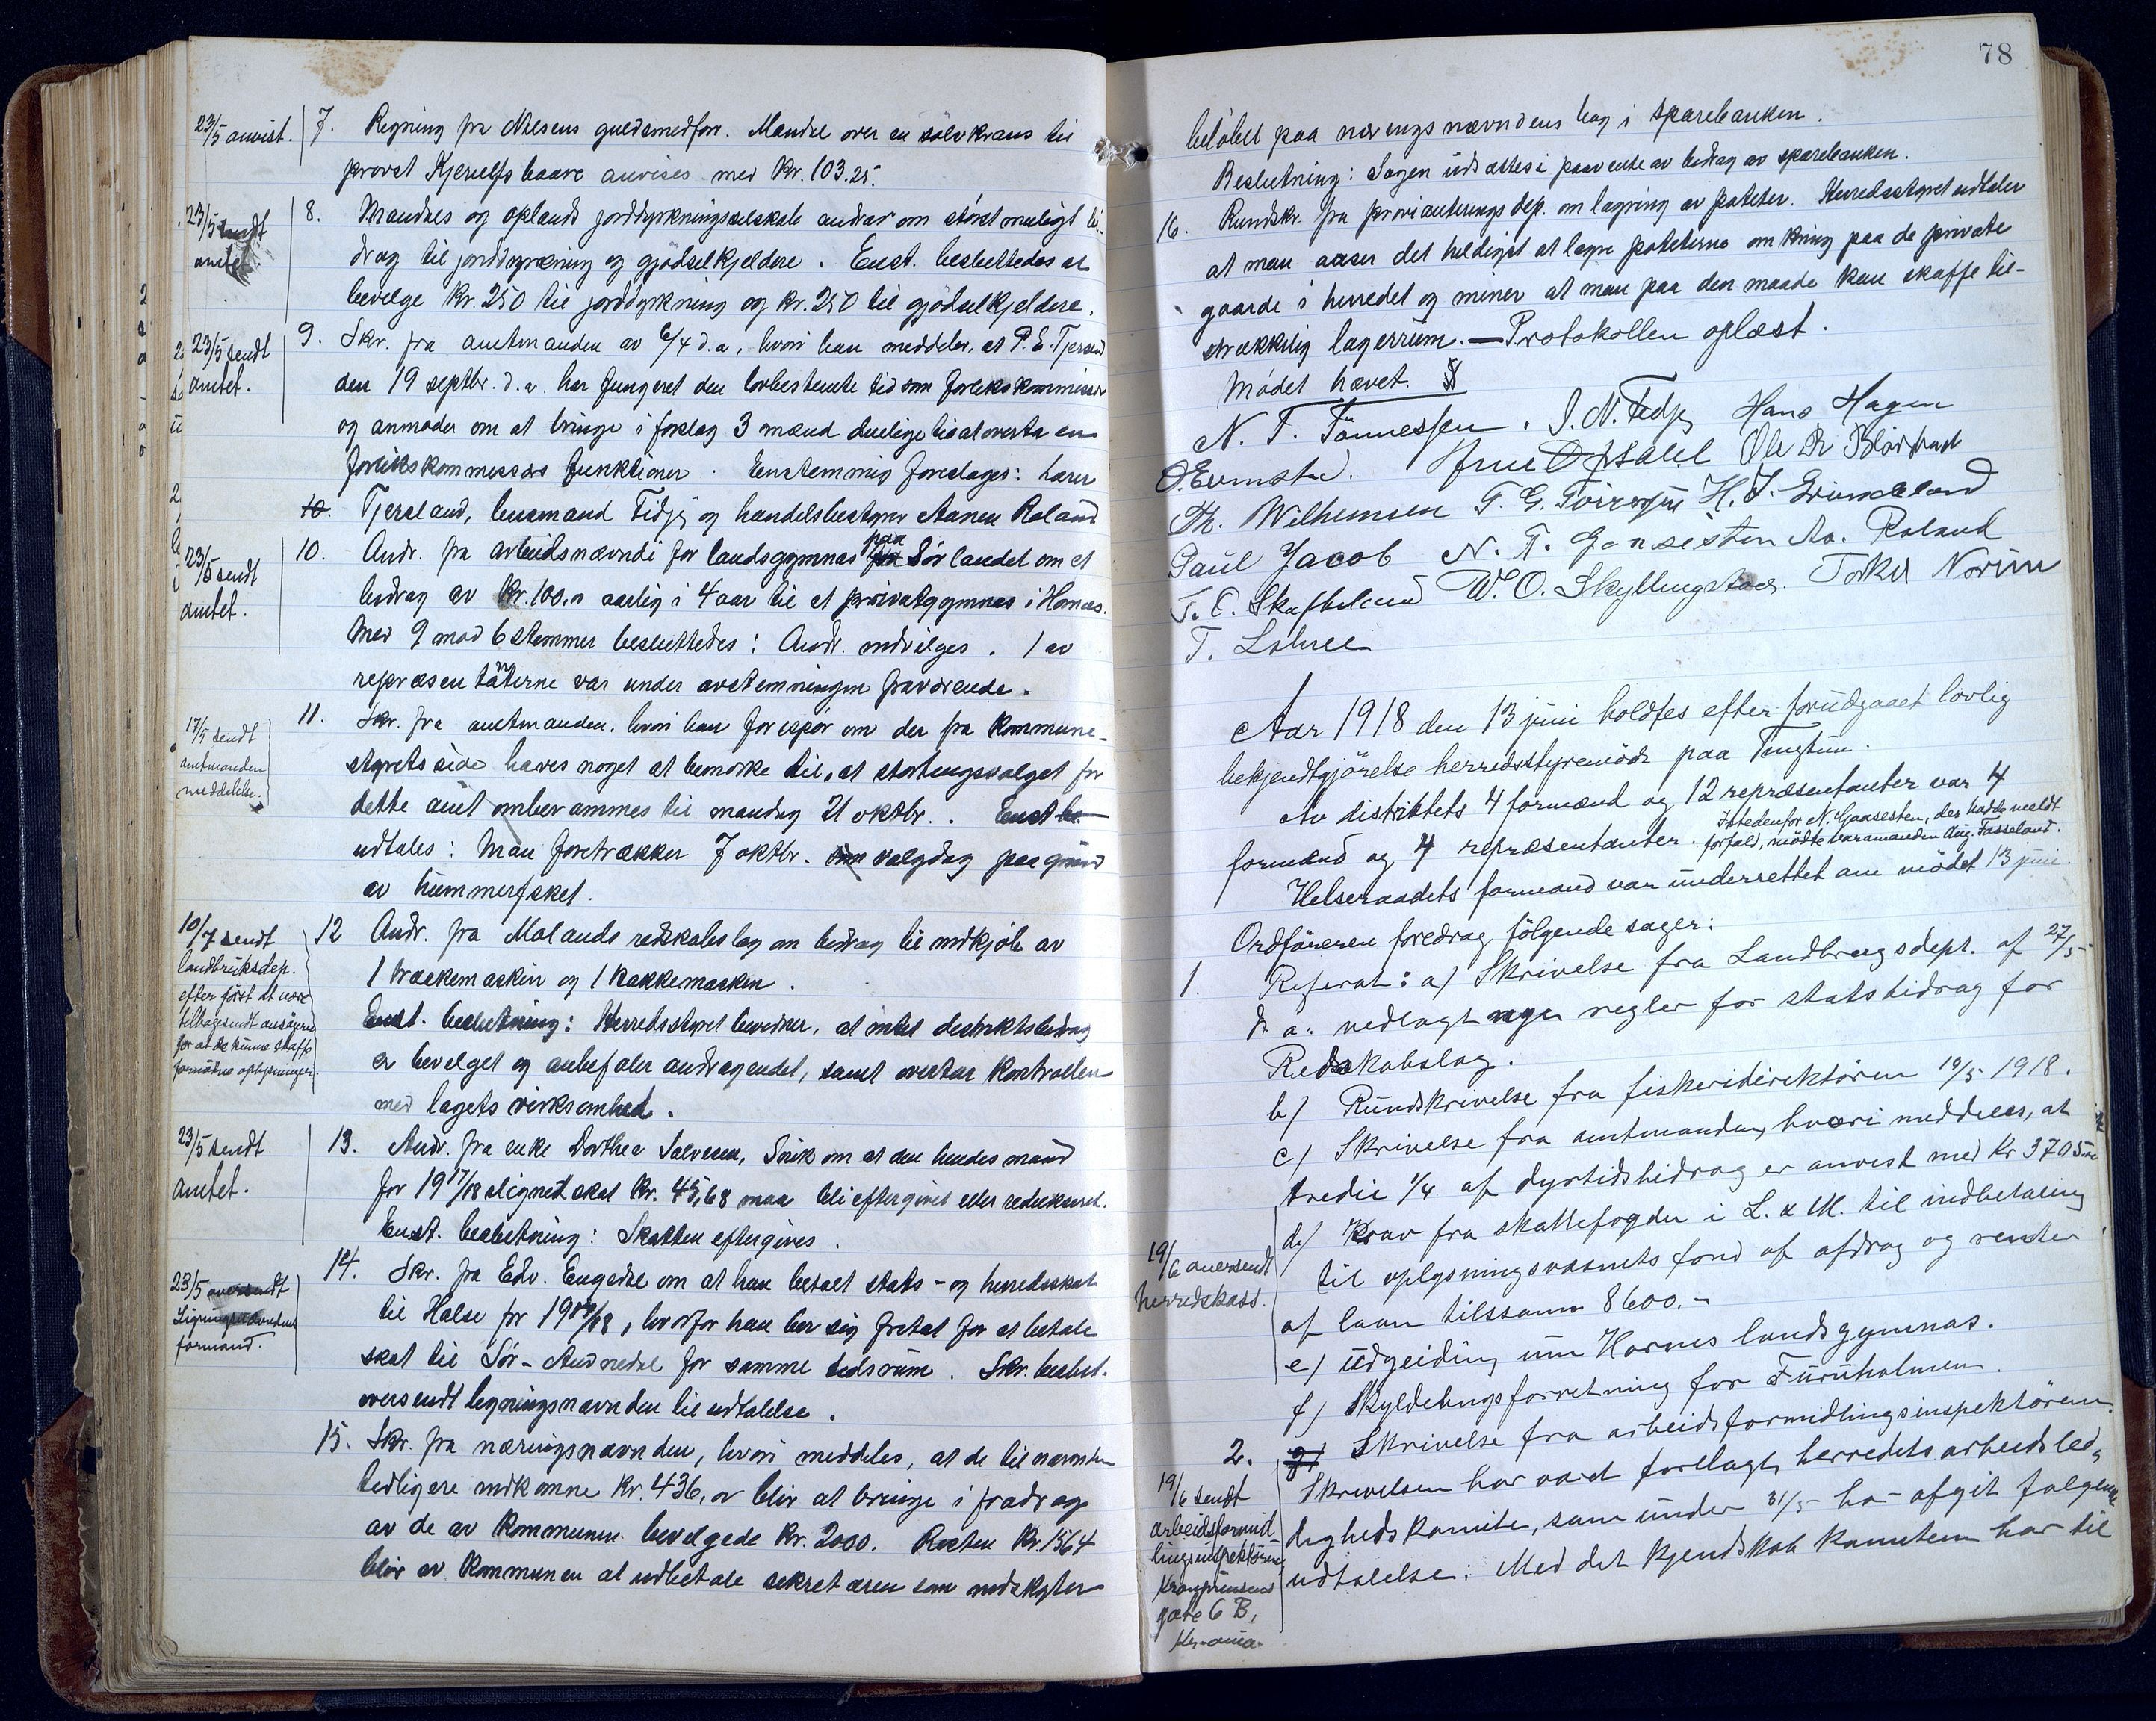 23/5 anvist. 7. Regning fra Nielsens guldsmedforr. Mandal over en sölvkrans til
provst Kjerulfs baare anvises med Kr. 103.25.
23/5 sendt amtet. 8. Mandals og oplands jorddyrkningsselskab andrar om störst muligt bi-
drag til jorddyrkning og gjödselkjeldere. Enst. besluttedes at
bevilge Kr. 250 til jorddyrkning og Kr. 250 til gjödselkjeldere.
23/5 sendt amtet. 9. Skr. fra amtmanden av 6/4 d.a, hvori han meddeler, at P. E. Tjersland
den 19 septbr. d.a. har fungeret den lovbestemte tid som forlikskommissær
og anmoder om at bringe i forslag 3 mænd duelige til at overta en
forlikskommissærs funktioner. Enstemmig foreslages: lærer
10. Tjersland, lensmand Fidje og handelsbestyrer Aanen Roland
23/5 sendt amtet. 10. Andr. fra arbeidsnævndi for landsgymnas paa Sörlandet om et
bidrag av Kr. 100,00 aarlig i 4 aar til et privatgymnas i Hornes.
Med 9 mod 6 stemmer besluttedes: Andr. indvilges. 1 av
repræsentanterne var under avstemningen fraværende.
17/5 sendt amtmanden meddelelse. 11. Skr. fra amtmanden, hvori han forespör om der fra kommune-
styrets side haves noget at bemærke til, at stortingsvalget for
dette amt omberammes til mandag 21 oktbr. . Enst. be
udtales: Man foretrækker 7 oktbr. som valgdag paa grund
av hummerfisket.
10/7 sendt landbruksdep. efter först at være tilbagesendt ansögerne for at de kunne skaffe fornödne oplysninger. 12 Andr. fra Molands redskabslag om bidrag til indkjöb av
1 træskemaskin og 1 hakkemaskin.
Enst. beslutning: Herredsstyret bevidner, at intet distriktsbidrag
er bevilget og anbefaler andragendet, samt overtar kontrollen
med lagets virksomhed.
23/5 sendt amtet. 13. Andr. fra enke Dorthea Salvesen, Svik om at den hendes mand
for 1917/18 lignet skat Kr. 45,68 maa bli eftergivet eller reduseret.
Enst. beslutning: Skatten eftergives.
23/5 oversendt Ligningsnævndens formand. 14. Skr. fra Edv. Engedal om at han betalt stats- og herredsskat
til Halse for 1917/18, hvorfor han ber sig fritat for at betale
skat til Sör-Audnedal for samme tidsrum. Skr. beslut.
oversendt ligningsnævnden til udtalelse.
15. Skr. fra næringsnævnden, hvori meddeles, at de til nævnden
tidligere indkomne Kr. 436, vil bli at bringe i fradrag
av de av kommunen bevilgede Kr. 2000. Resten Kr. 1564
blir av kommunen at utbetale sekretæren som indskyter
78
belöbet paa næringsnævndens bog i sparebanken.
Beslutning: Sagen udsættes i paavente av bidrag av sparebanken.
16. Rundskr. fra provianteringsdep. om lagring av poteter. Herredsstyret udtaler
at man anser det heldigst at lagre poteterne omkring paa de private
gaarde i herredet og mener at man paa den maade kan skaffe til-
strækkelig lagerrum. — Protokollen oplæst.
Mödet hævet.
N. T. Tönnessen. J. N. Fidje Hans Hagen
O. Evensted. Arne Opsahl Ole
Th. Wilhemsen T. G. H. J. Grundeland
Paul Jacob N. A. Aa. Roland
T. O. Skofteland W. O. Skyllingstad. Torkel Norum
T.
Aar 1918 den 13 juni holdtes efter forudgaaet lovlig
bekjendtgjörelse herredsstyremöde paa Tingtun.
Av distriktets 4 formænd og 12 repræsentanter var 4
formænd og 4 repræsentanter. Istedenfor N. Gaasesten, der hadde meldt
forfald, mödte varamanden Aug. Fasseland.
Helseraadets formand var underrettet om mödet 13 juni.
Ordföreren foredrog fölgende sager:
1. Referat: a) Skrivelse fra Landbrugsdept. af 27/5
d. a. vedlagt nye regler for statsbidrag for
Redskabslag.
b) Rundskrivelse fra fiskeridirektören 10/5 1918.
c) Skrivelse fra amtmanden, hvori meddeles, at
tredie 1/4 af dyrtidsbidrag er anvist med Kr 3705
19/6 oversendt herredskass. d) Krav fra skattefogden i L. & M. til indbetaling
til oplysningsvæsnets fond af afdrag og renter
af laan tilssamm 8600.-
e) udgreiding um Hornes landsgymnas.
f) Skyldelingsforretning for Furuholmen.
2. g) Skrivelse fra arbeidsformidlingsinspektören.
19/6 sendt arbeidsformidlingsinspektören, Kronprinsens gate 6 B, Kr-ania. Skrivelsen har været forelagt herredets arbeidsled-
dighedskomite, som under 31/5 ha afgit følgende
udtalelse: Med det kjendskab komiteen har til